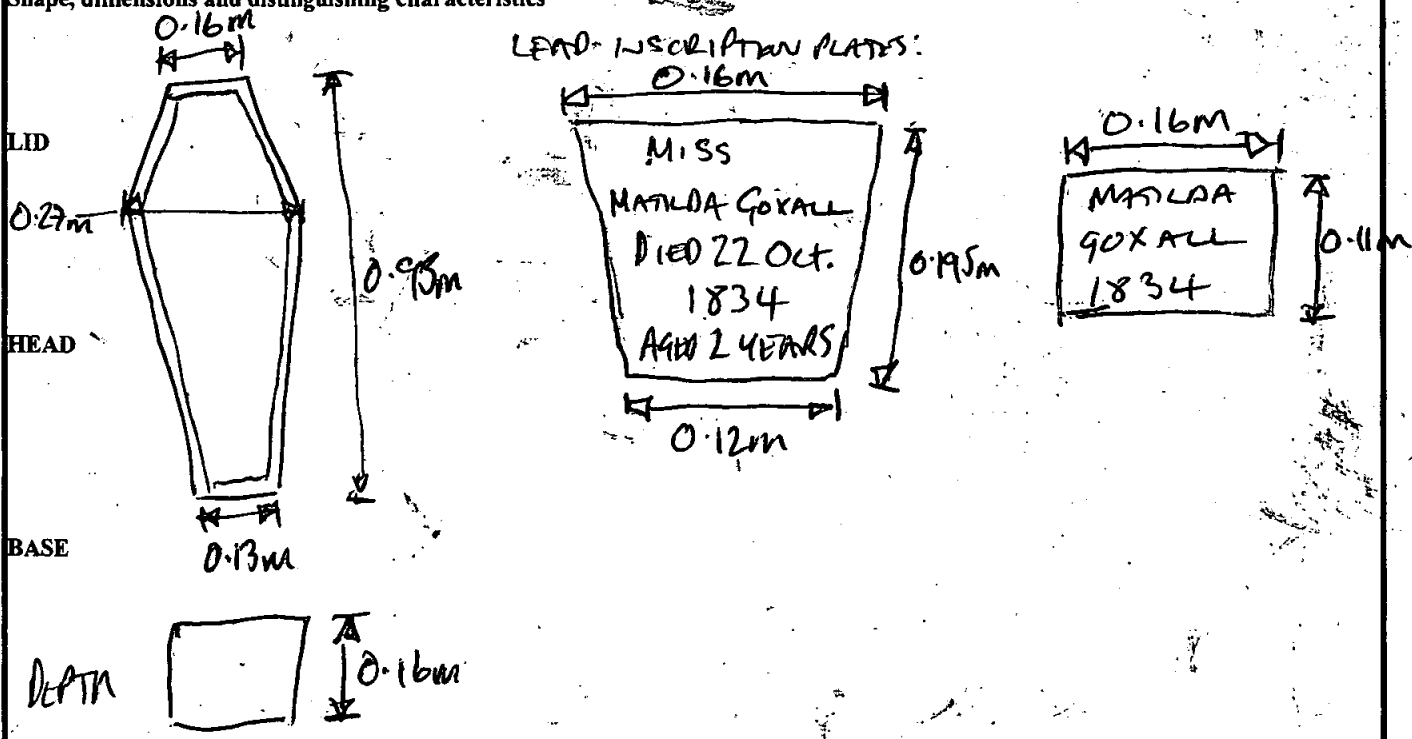 Shape, dimensions and distinguishing characteristics
0.16m
LID
0.27m
HEAD
BASE
0.13m
DEPTH
0.16m
LEAD INSCRIPTION PLATES:
0.16m
MISS
MATILDA GOXALL
DIED 22 Oct.
1834
AGED 2 YEARS
0.195m
0.12m
0.16m
MATILDA
GOXALL
1834
0.11m